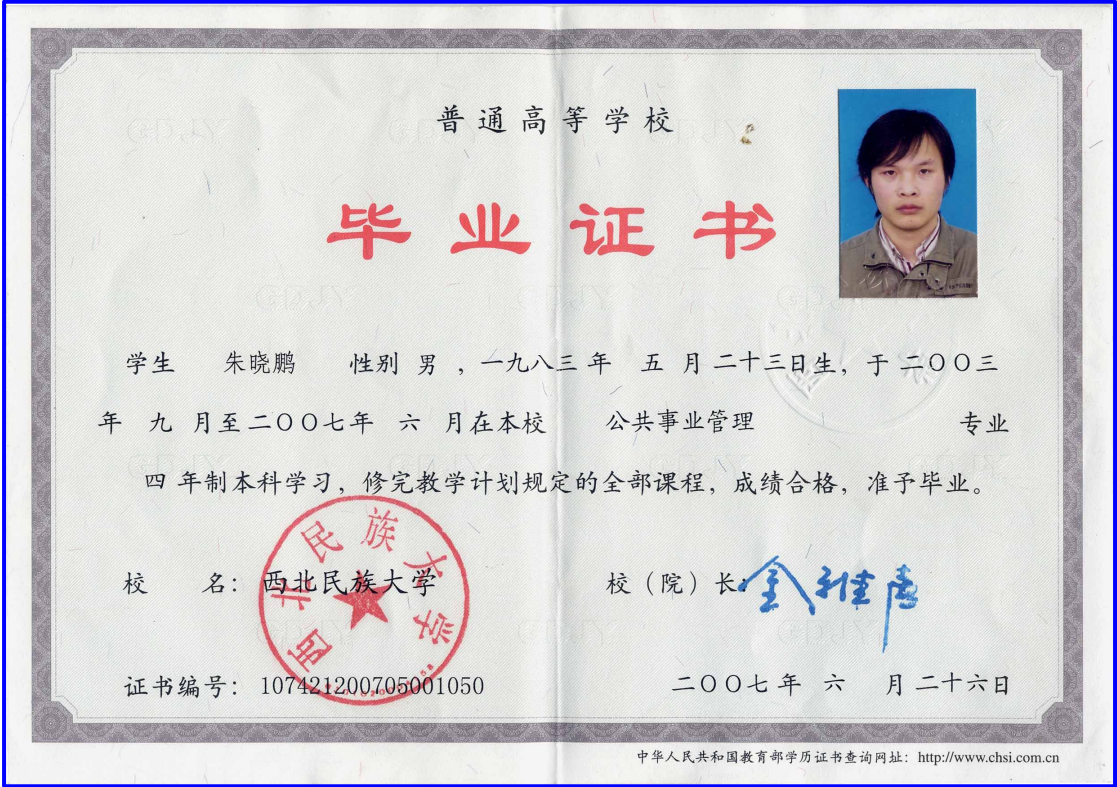 普通高等学校
毕业证书
学生 朱晓鹏 性别 男 ，一九八三 年 五 月 二十三日生，于 二〇〇三
年 九 月至 二〇〇七年 六 月在本校 公共事业管理 专业
四 年制本科学习，修完教学计划规定的全部课程，成绩合格，准予毕业。
校 名：西北民族大学
西北民族大学
校（院）长：
证书编号：107421200705001050
二〇〇七 年 六 月 二十六日
中华人民共和国教育部学历证书查询网址：http://www.chsi.com.cn